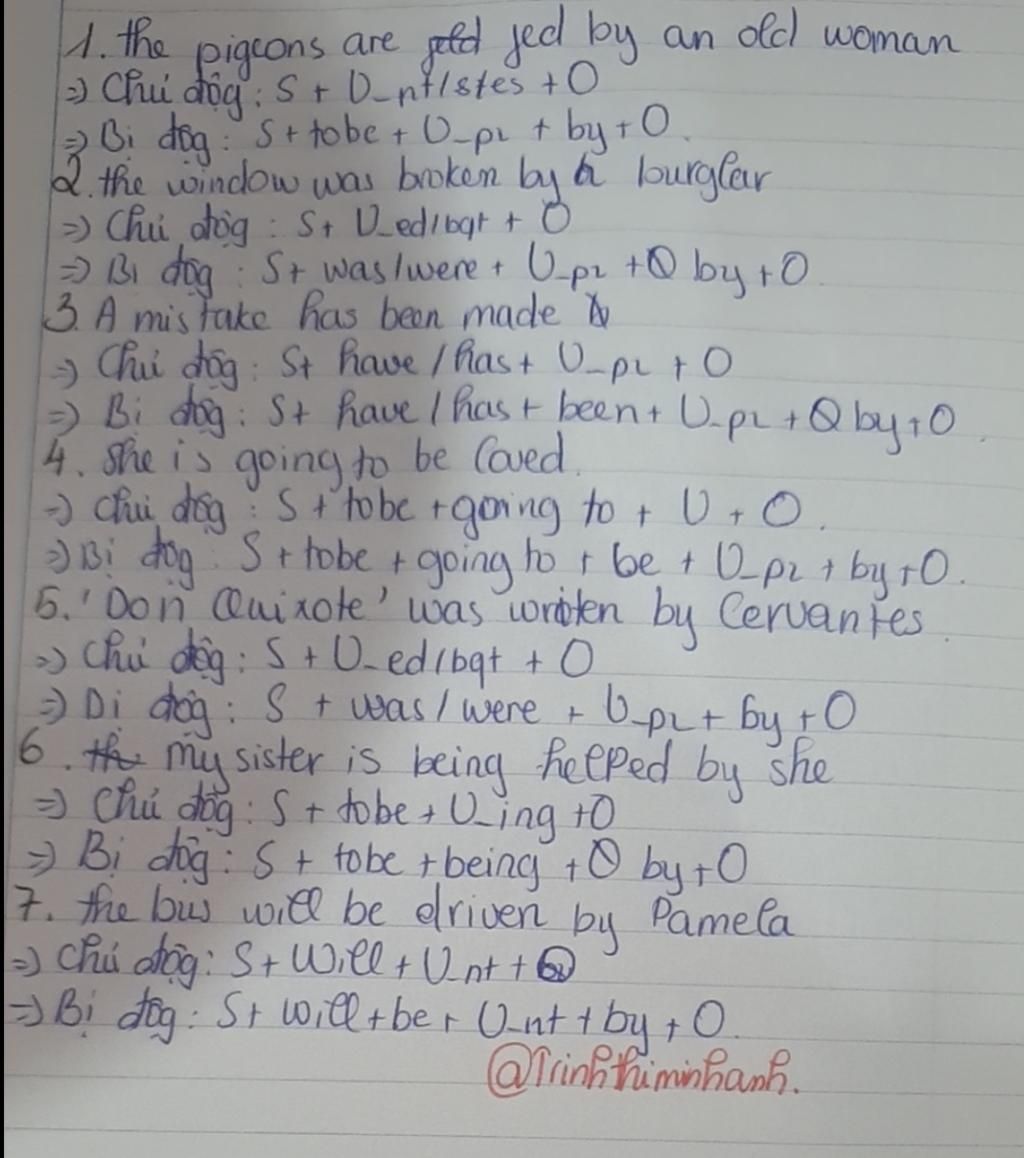 1. the pigeons are fed by an old woman
=) Chủ động: S + V_nt/s/es + O
=) Bị động: S + tobe + V_p2 + by + O.
2. the window was broken by a burglar
=) Chủ động: S + V_ed/bqt + O
=) Bị động: S + was/were + V_p2 + by + O
3. A mistake has been made
=) Chủ động: S + have / has + V_p2 + O
=) Bị động: S + have / has + been + V_p2 + by + O.
4. She is going to be loved.
=) Chủ động: S + tobe + going to + V + O.
=) Bị động: S + tobe + going to + be + V_p2 + by + O.
5. 'Don Quixote' was written by Cervantes.
=) Chủ động: S + V_ed/bqt + O
=) Bị động: S + was / were + V_p2 + by + O
6. My sister is being helped by she
=) Chủ động: S + tobe + V_ing + O
=) Bị động: S + tobe + being + by + O
7. the bus will be driven by Pamela
=) Chủ động: S + Will + V_nt +
=) Bị động: S + will + be + V_nt + by + O.
@Trinhthiminhanh.